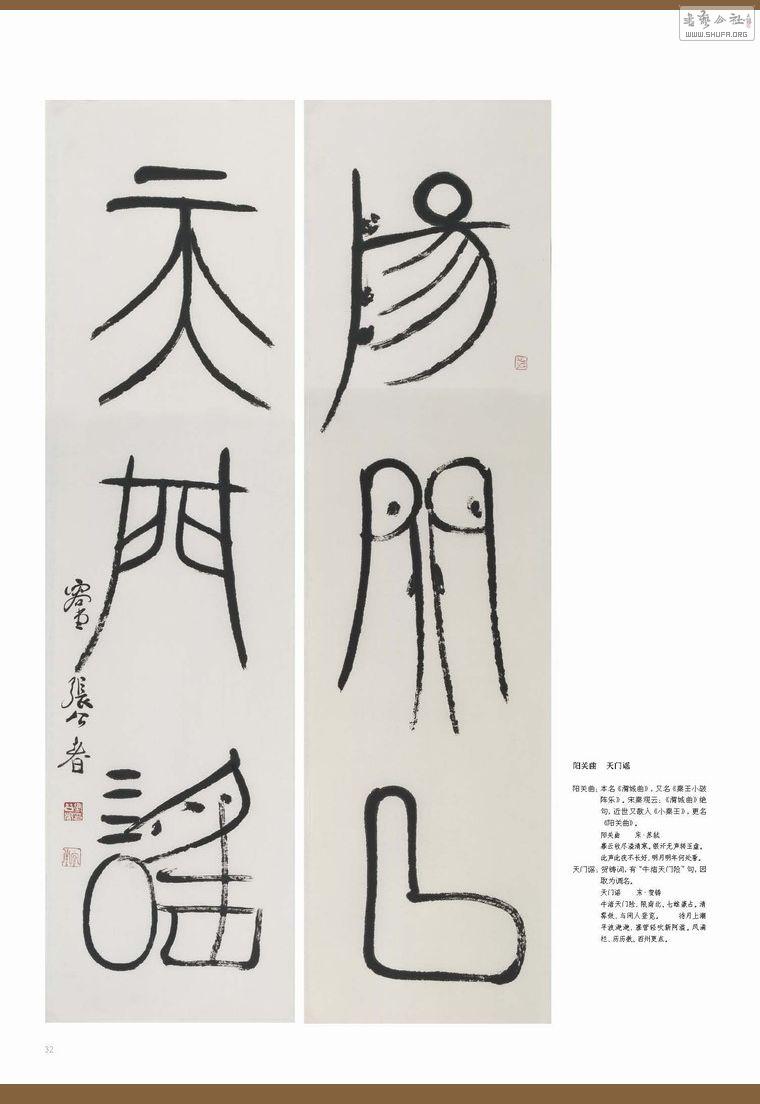 書藝公社
WWW.SHUFA.ORG
陽關曲
天門謠
容堂 張公者
阳关曲 天门谣
阳关曲：本名《渭城曲》，又名《秦王小破
陈乐》。宋秦观云：《渭城曲》绝
句，近世又歌入《小秦王》，更名
《阳关曲》。
阳关曲 宋·苏轼
暮云收尽溢清寒。银汗无声转玉盘。
此声此夜不长好，明月明年何处看。
天门谣：贺铸词，有“牛渚天门险”句，因
取为调名。
天门谣 宋·贺铸
牛渚天门险，限南北、七雄豪占。清
雾敛，与闲人登览。 待月上潮
平波滟滟，塞管轻吹新阿滥。风满
槛，历历数、西州更点。
32